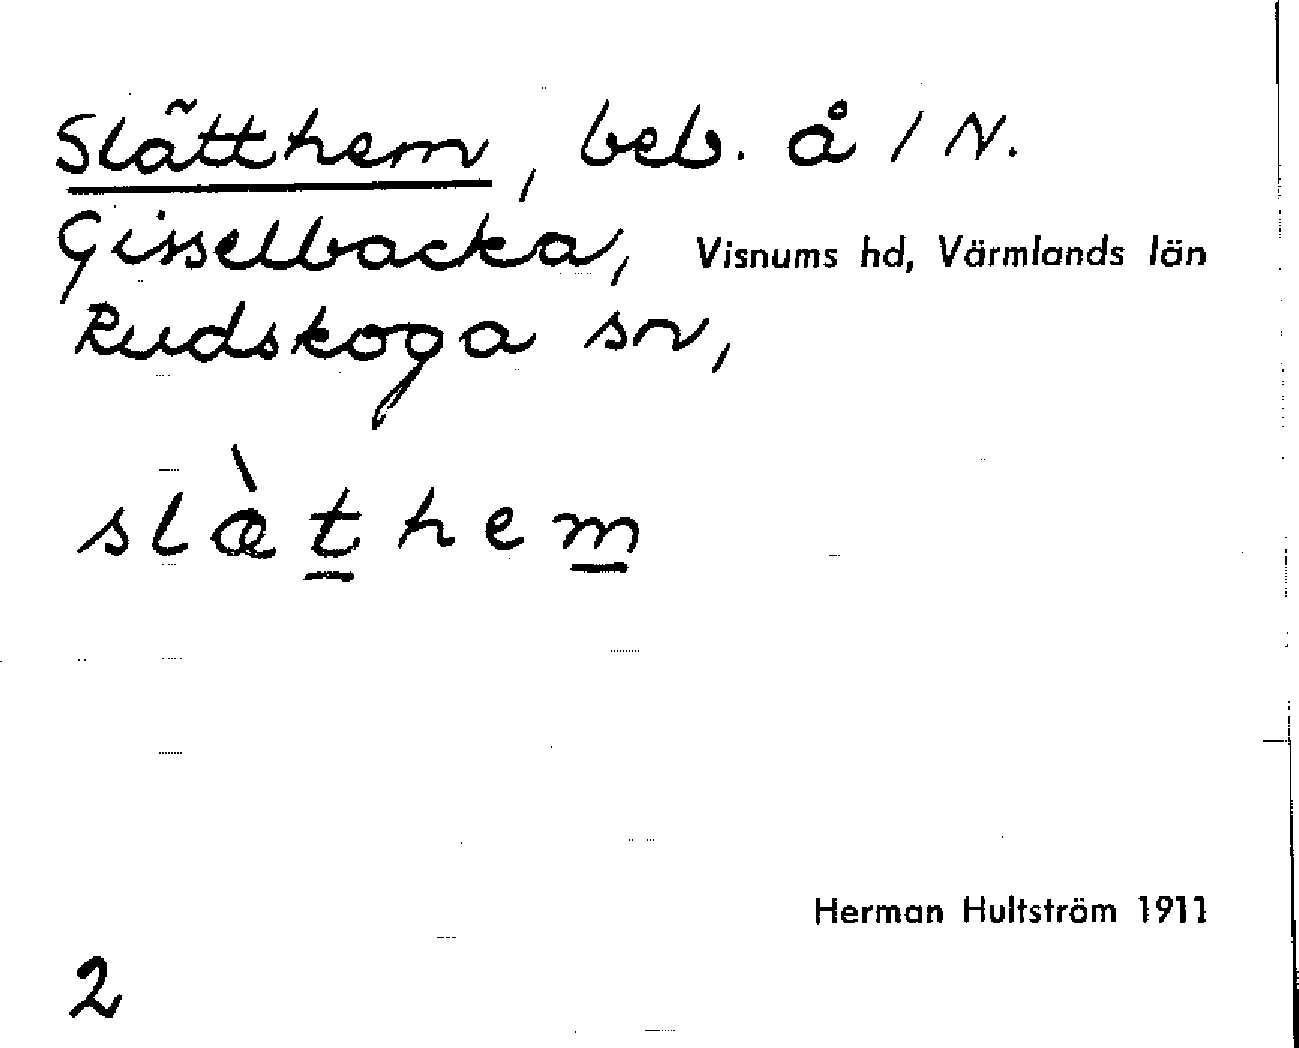 Slätthem, beb. å 1 N.
Gisselbacka, Visnums hd, Värmlands län
Rudskoga sn,
slæ̀t̲hem̲
Herman Hultström 1911
2